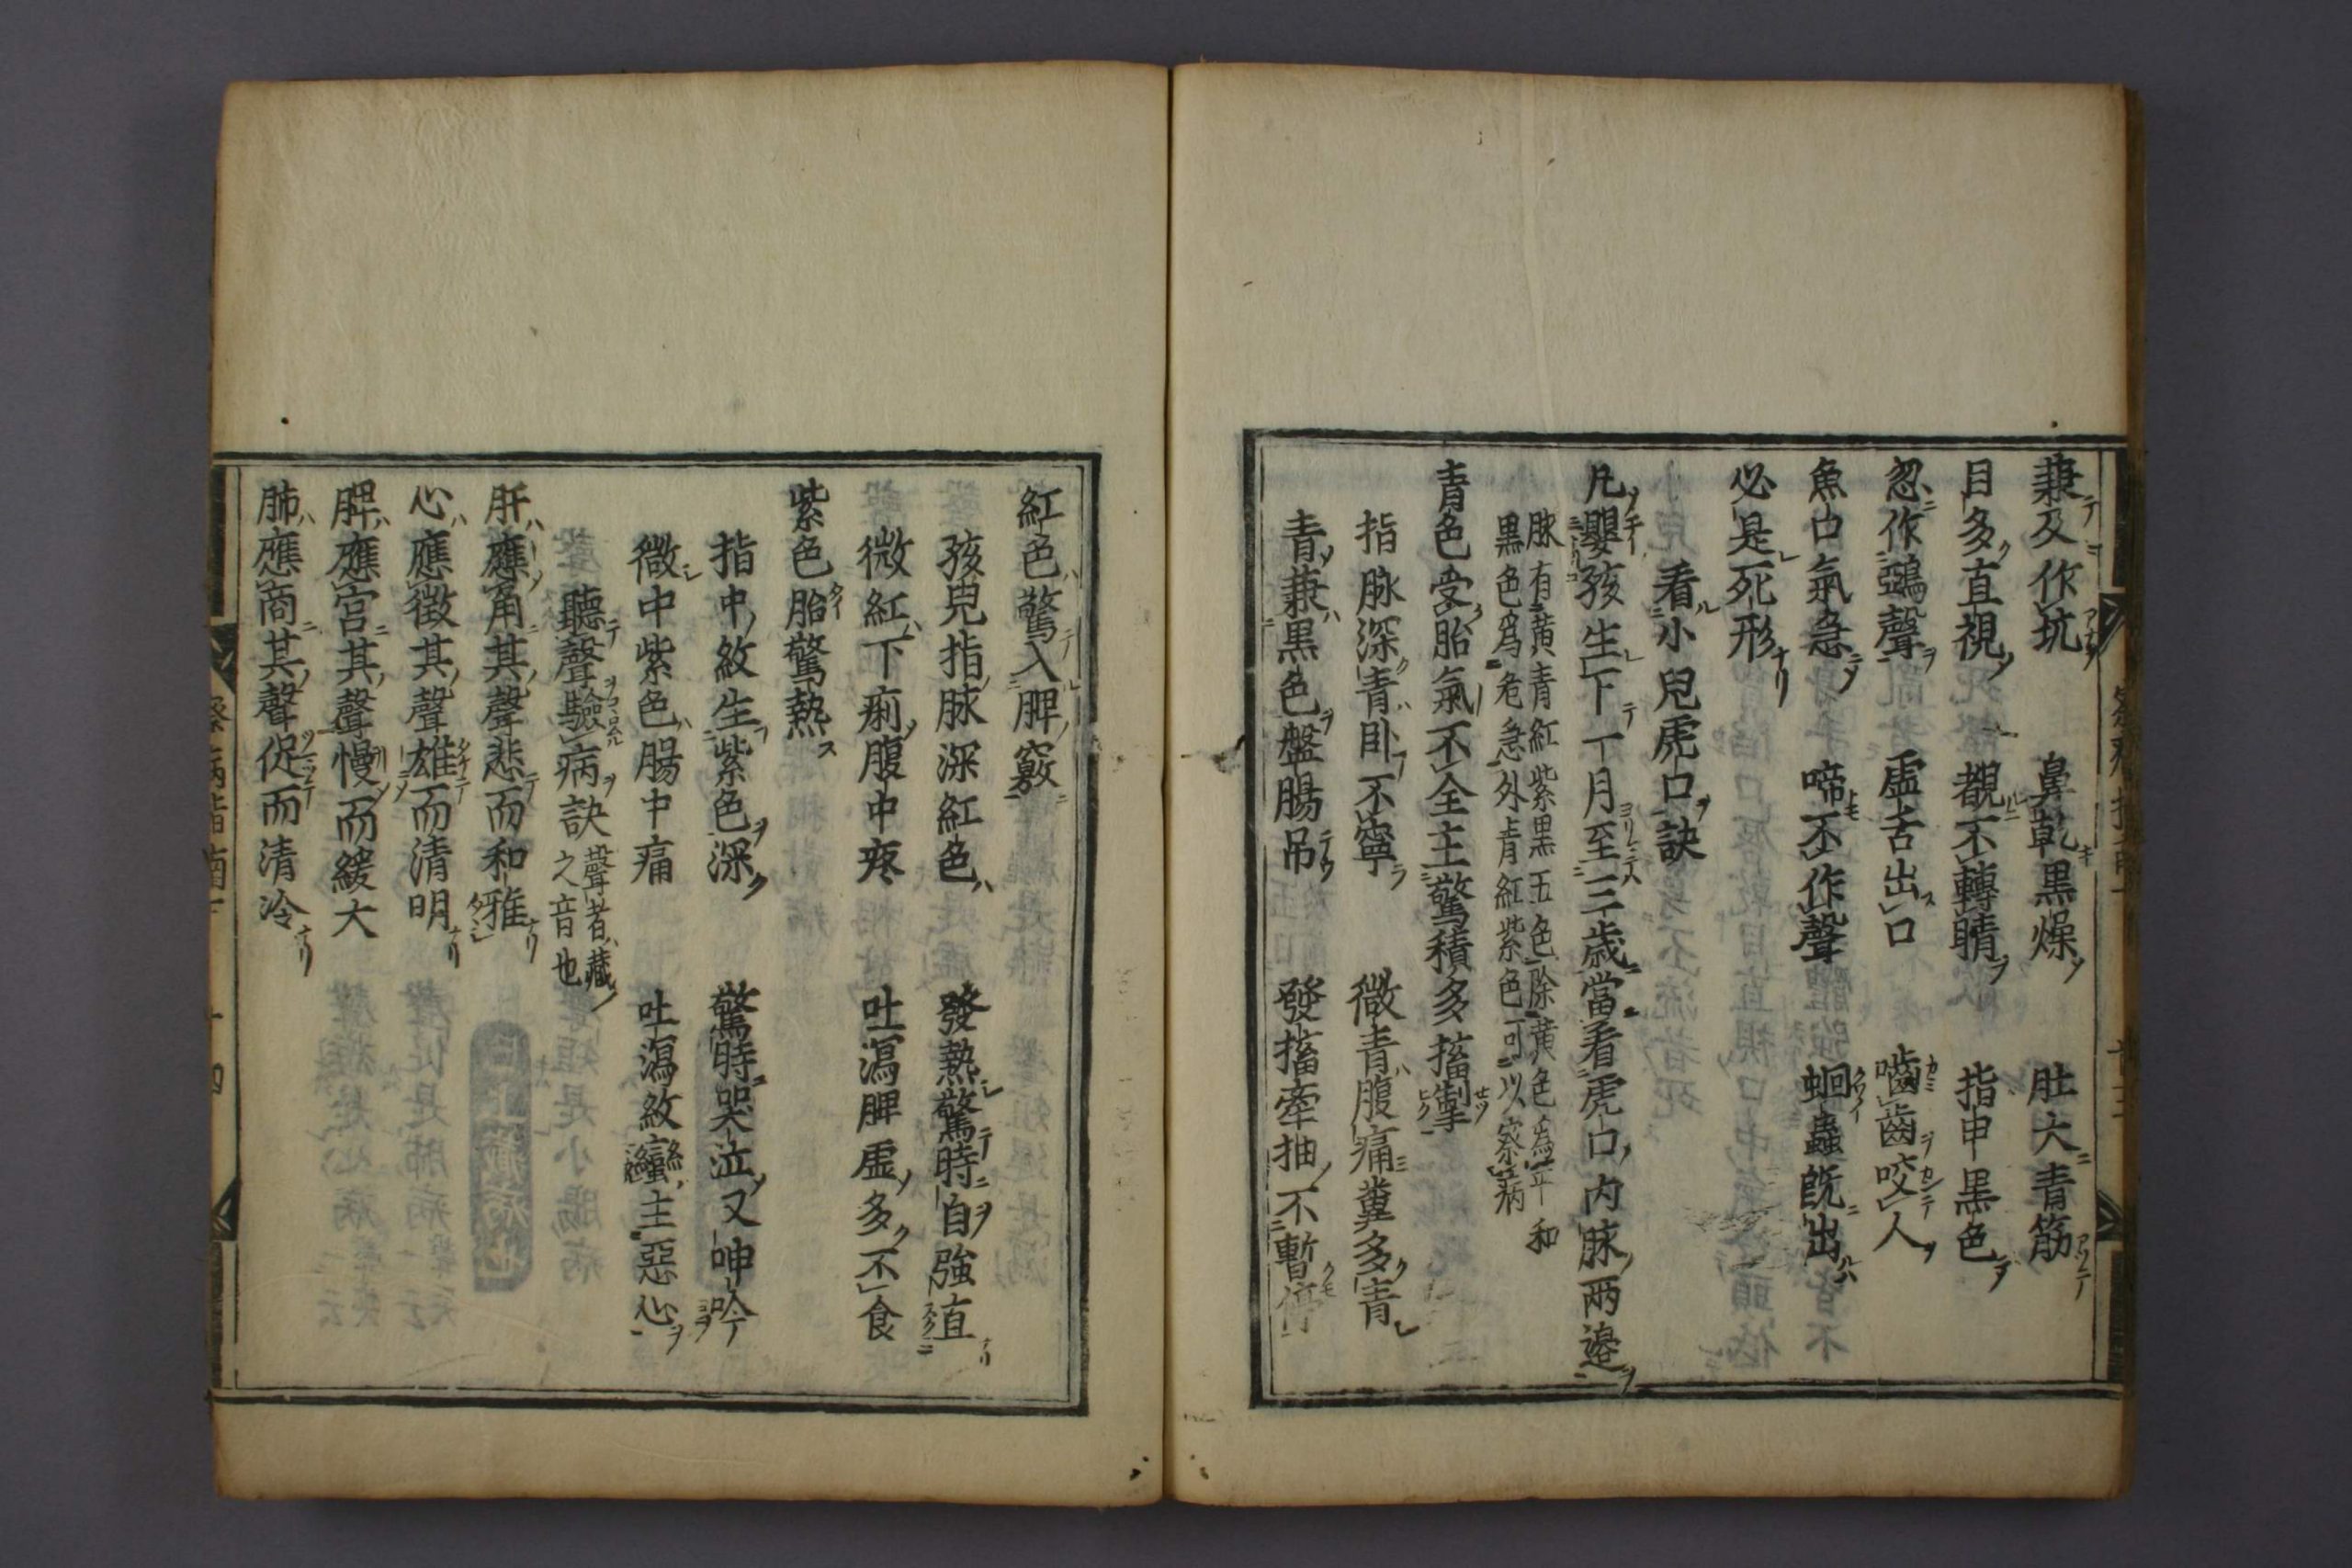 兼及作坑　鼻乾黒燥　肚大青筋
目多直視　覩不轉睛　指甲黒色
忽作鵶聲　虚舌出口　嚙齒咬人
魚口氣急　啼不作聲　蛔蟲既出
必是死形
看小兒虎口訣
凡嬰孩生下一月至三歳當看虎口内脉兩邉
脉有黄青紅紫黒五色除黄色為平和
黒色爲危急外青紅紫色可以察病
青色受胎氣不全主驚積多搐掣
指脉深青卧不寧　微青腹痛糞多青
青兼黒色盤腸吊　發搐牽抽不暫停
紅色驚入脾竅
孩兒指脉深紅色　發熱驚時自強直
微紅下痢腹中疼　吐瀉脾虚多不食
紫色胎驚熱
指中紋生紫色深　驚時哭泣又呻吟
微中紫色腸中痛　吐瀉紋主惡心
聽聲驗病訣 聲者藏之音也
肝應角其聲悲而和雅
心應徴其聲雄而清明
脾應宮其聲慢而緩大
肺應商其聲促而清冷